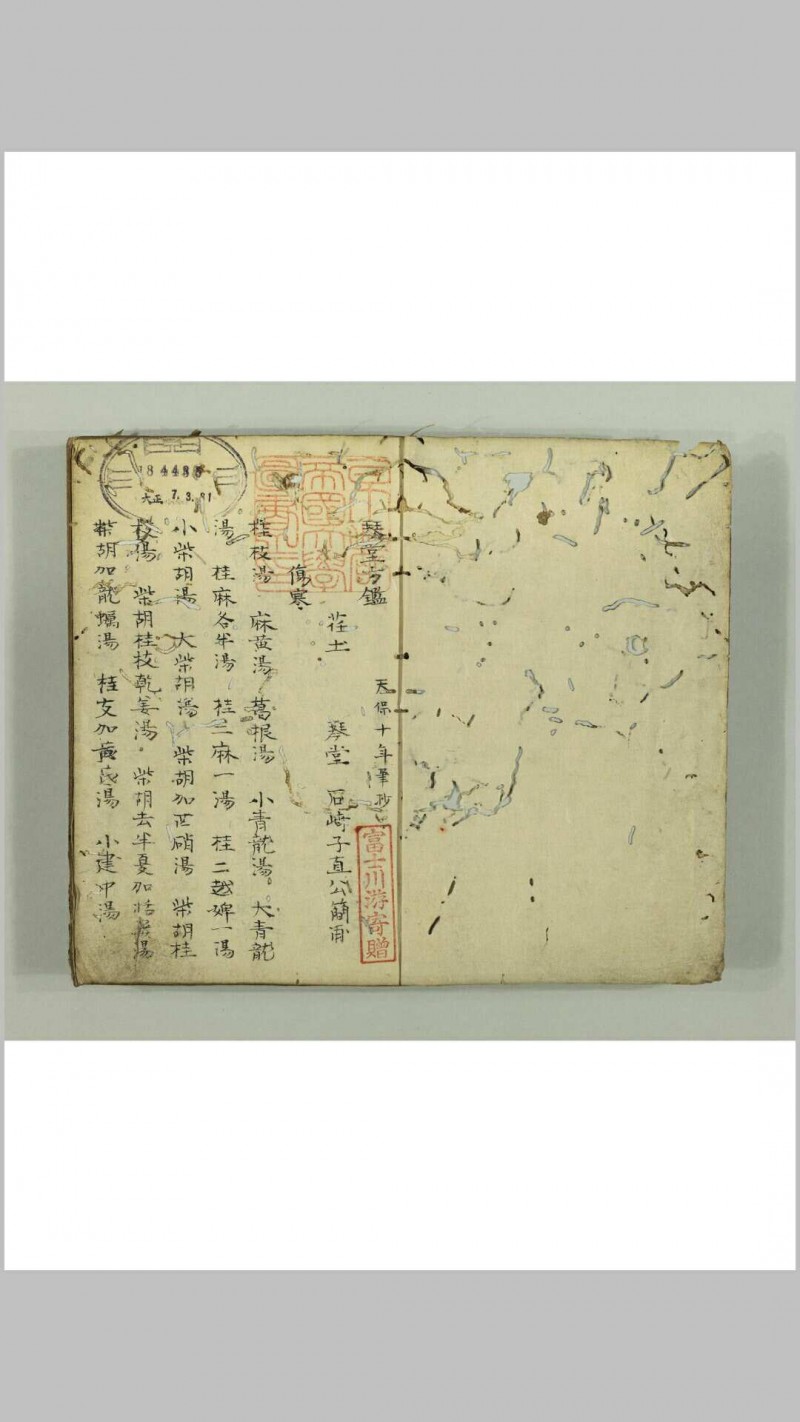 琴堂方鑑
天保十年筆抄
富士川游寄贈
荘士 琴堂 石崎子直公簡甫
傷寒
桂枝湯 麻黄湯 葛根湯 小青龍湯。大青龍
湯 桂麻各半湯 桂二麻一湯 桂二越婢一湯
小柴胡湯 大柴胡湯 柴胡加芒硝湯 柴胡桂
枝湯 柴胡桂枝乾姜湯。柴胡去半夏加括蔞湯
柴胡加龍蠣湯 桂支加黄芪湯 小建中湯
184486
大正 7.3.31